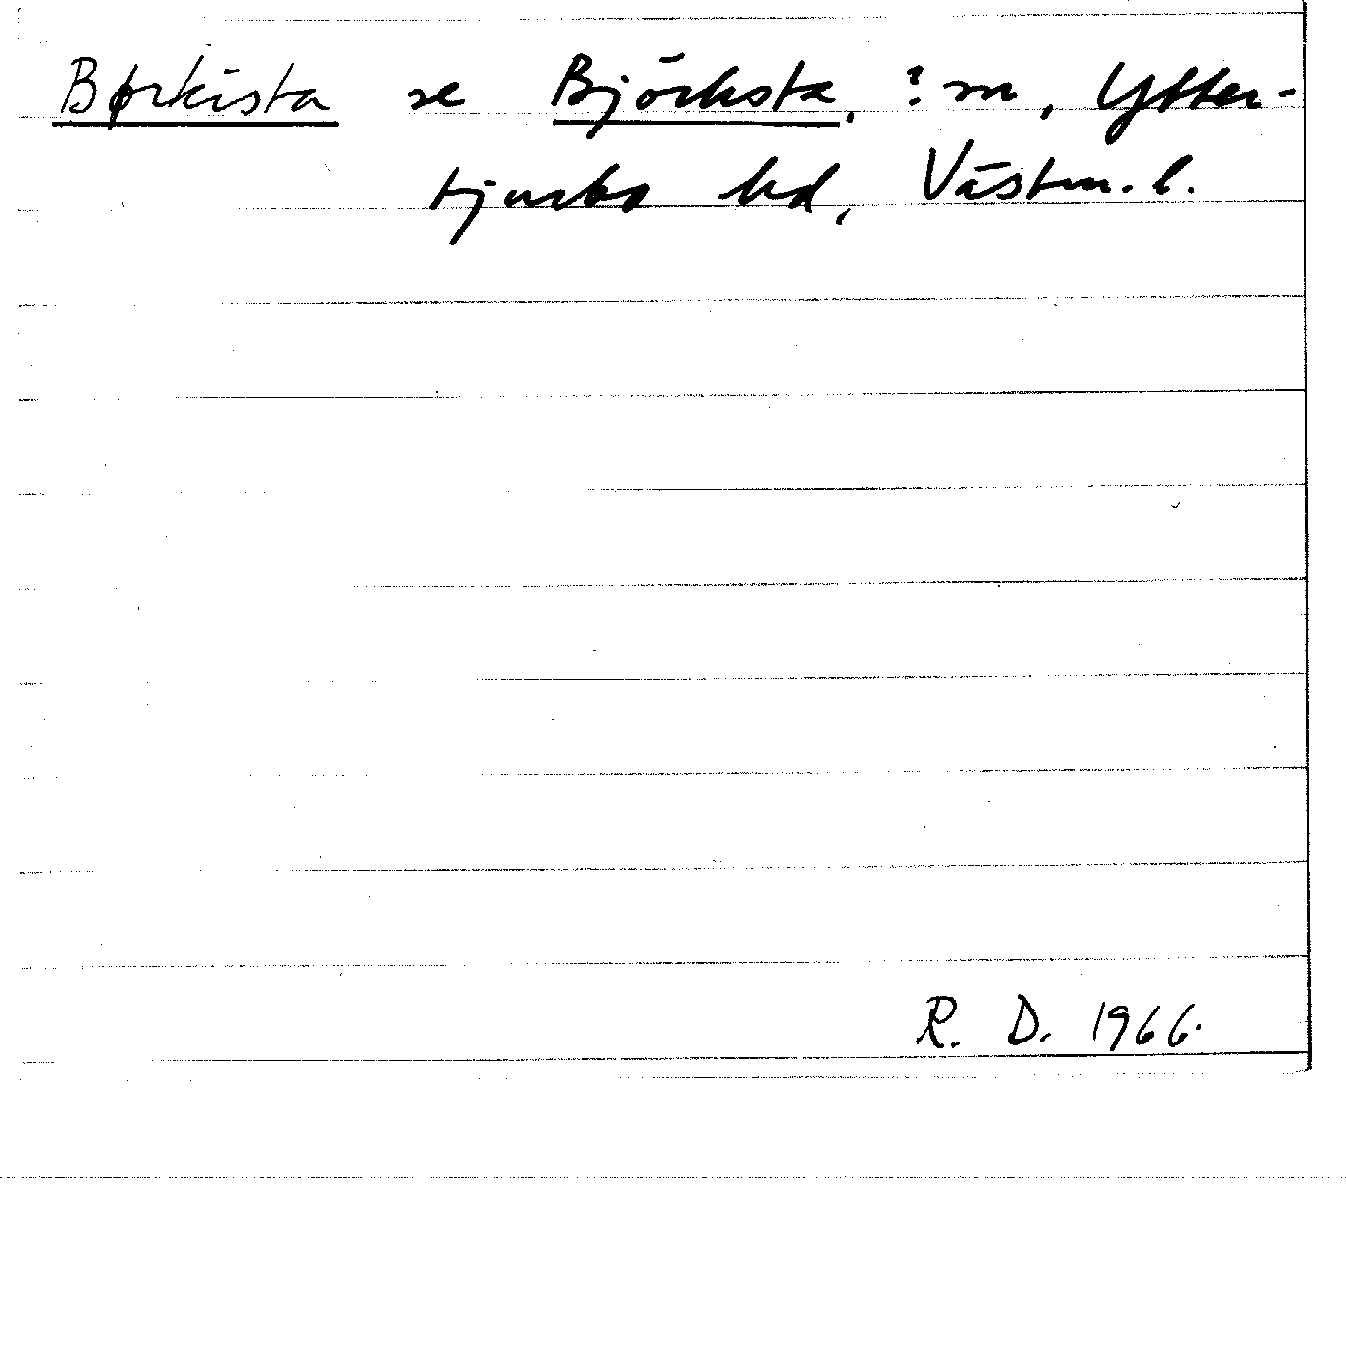 Børkista se Björksta, ? sn, Ytter-
tjurbo hd, Västm. l.
R. D. 1966.